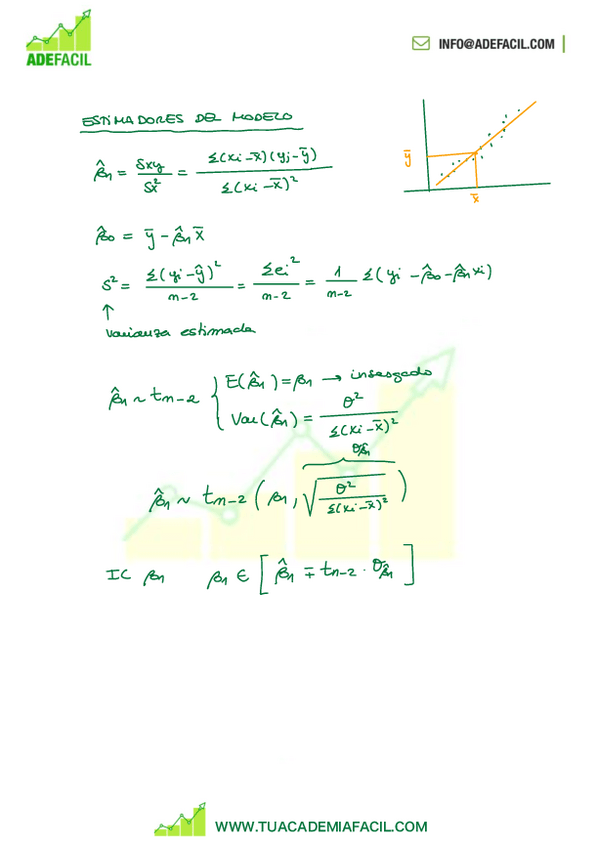 ADEFACIL
INFO@ADEFACIL.COM
ESTIMADORES DEL MODELO
β̂1 = Sxy / Sx² = Σ(xi-x̄)(yi-ȳ) / Σ(xi-x̄)²
ȳ
x̄
β̂0 = ȳ - β̂1x̄
S² = Σ(yi-ŷ)² / n-2 = Σei² / n-2 = 1 / n-2 Σ(yi - β̂0 - β̂1xi)
↑
varianza estimada
β̂1 ~ tn-2 { E(β̂1) = β1 → insesgado
Var(β̂1) = σ² / Σ(xi-x̄)²
σβ̂1
β̂1 ~ tn-2 (β1, √(σ² / Σ(xi-x̄)²))
IC β1 β1 ∈ [β̂1 ∓ tn-2 · σβ̂1]
WWW.TUACADEMIAFACIL.COM